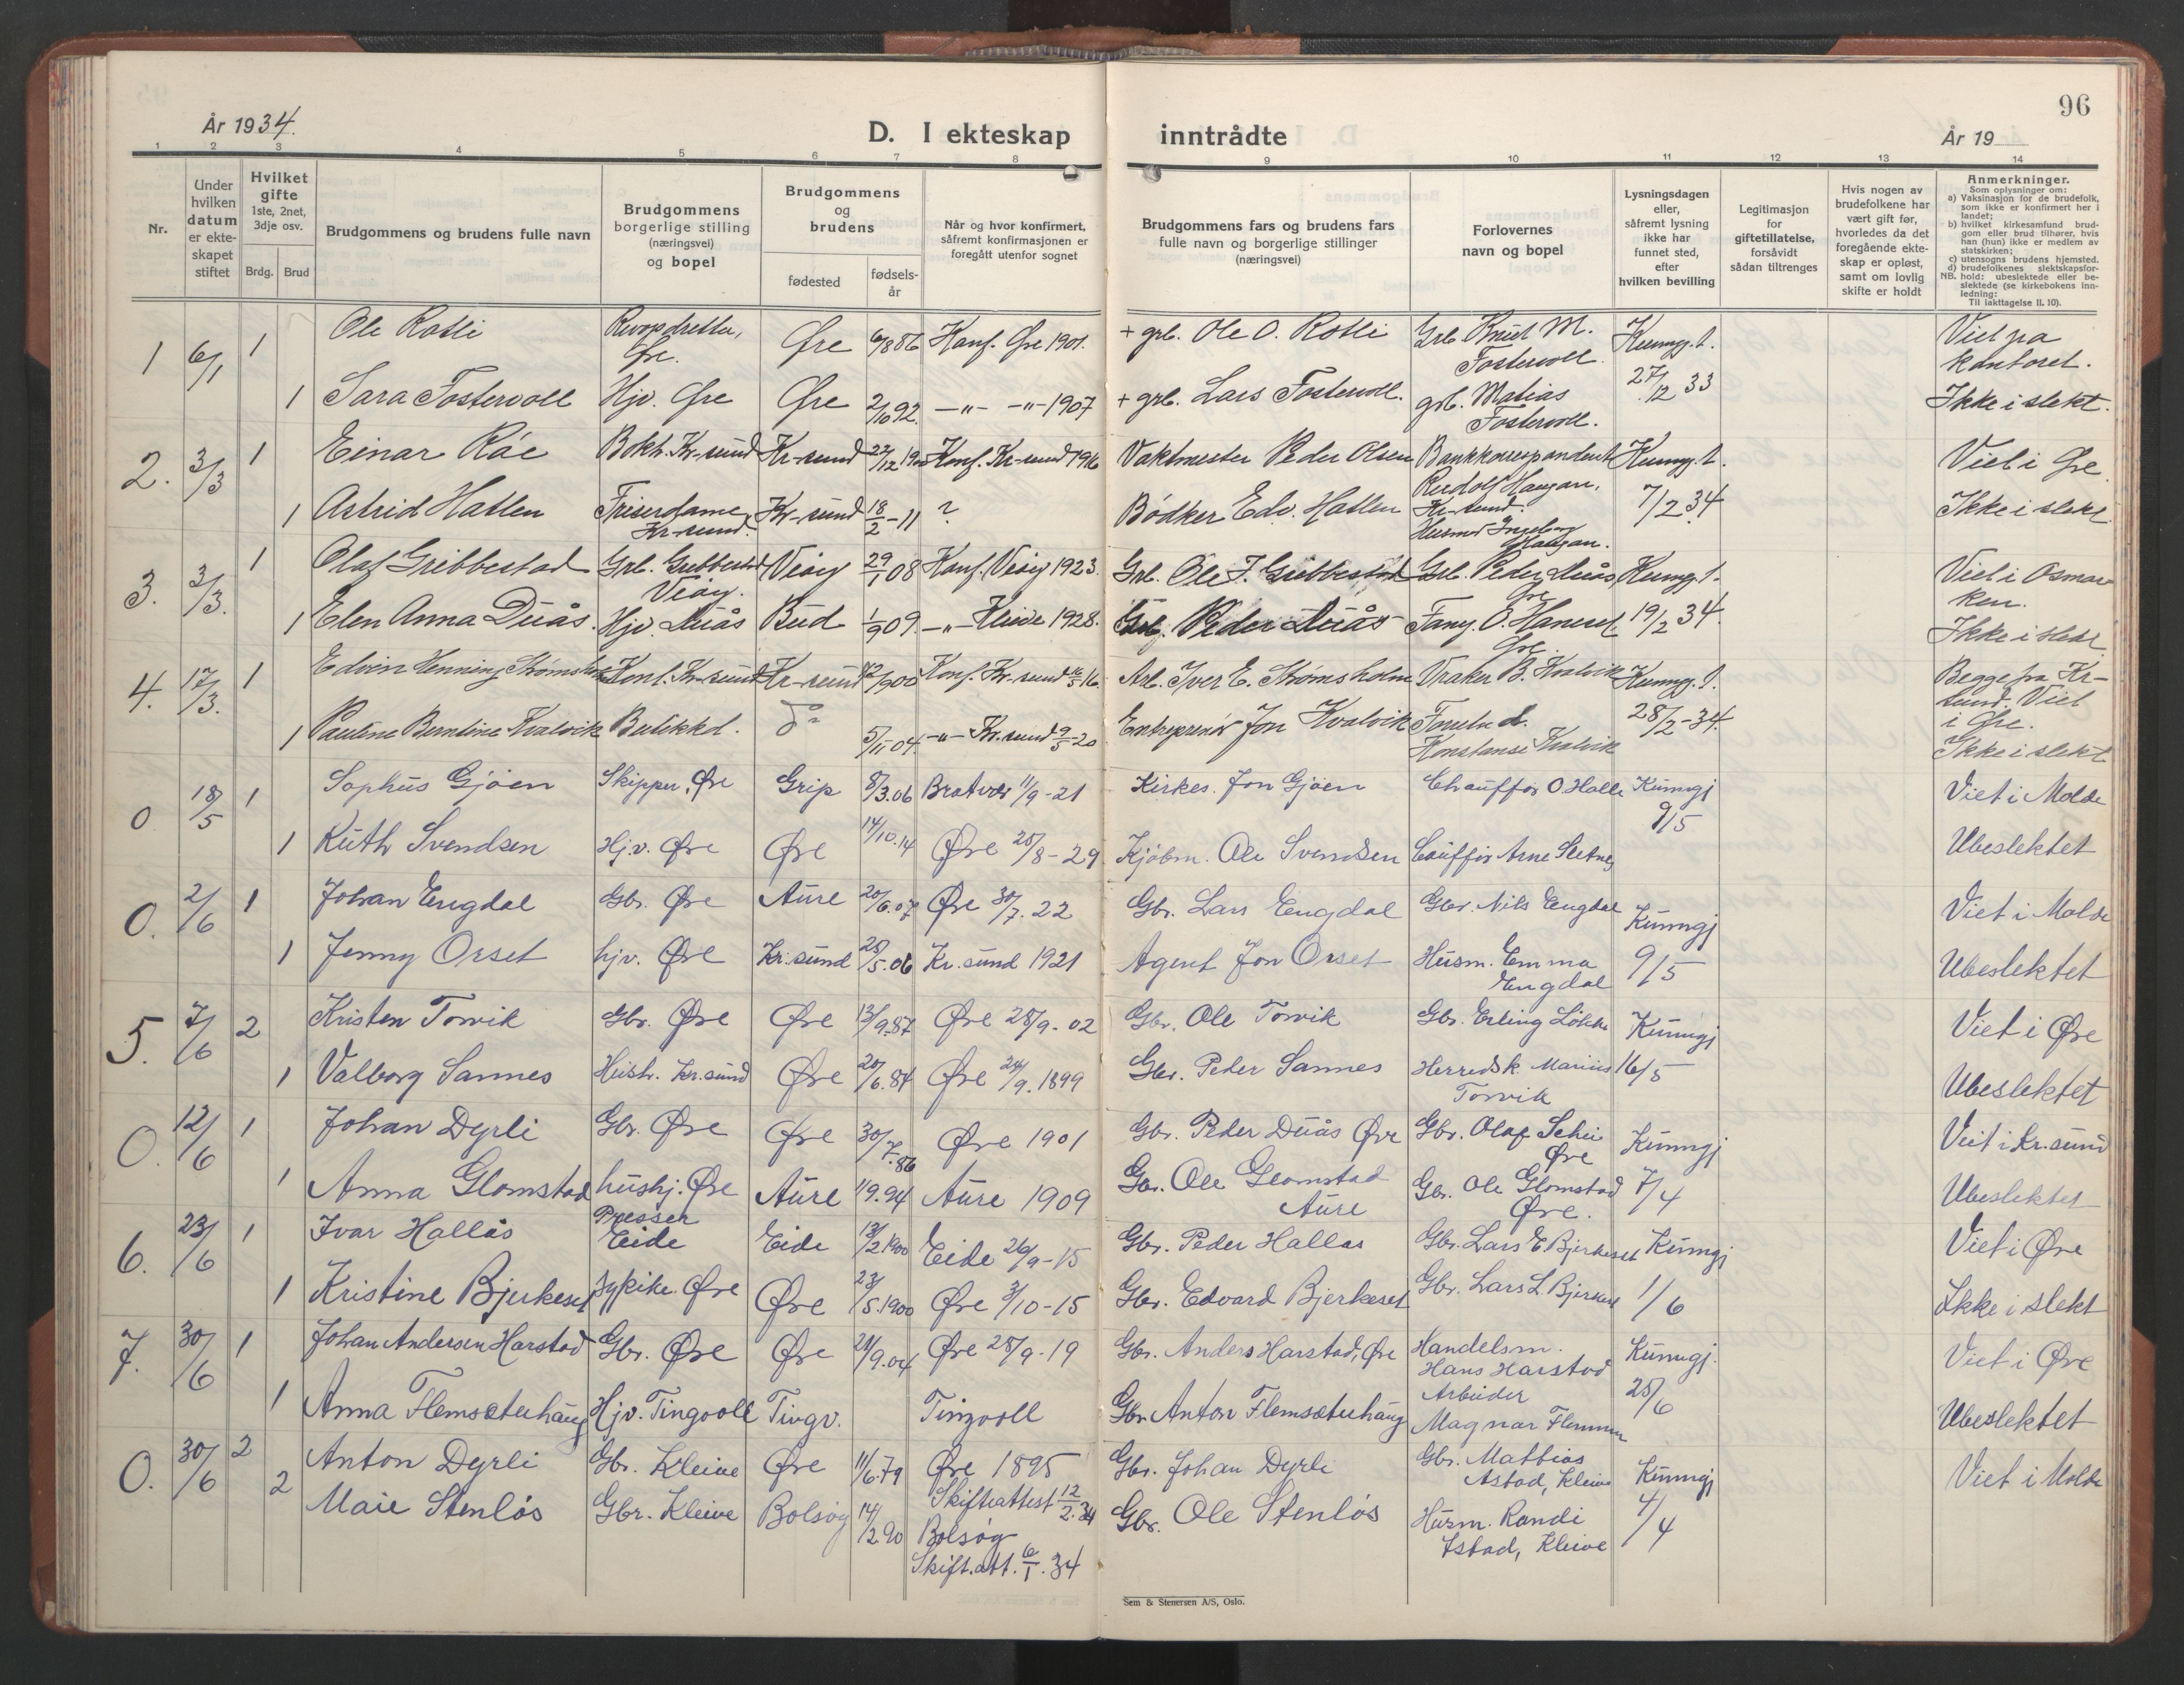 96
År 1934.
D. I ekteskap inntrådte
År 19
1 2 3 4 5 6 7 8 9 10 11 12 13 14
Nr.
Under hvilken datum er ekteskapet stiftet
Hvilket gifte
1ste, 2net, 3dje osv.
Brdg. Brud
Brudgommens og brudens fulle navn
Brudgommens borgerlige stilling (næringsvei) og bopel
Brudgommens og brudens
fødested fødsels-år
Når og hvor konfirmert, såfremt konfirmasjonen er foregått utenfor sognet
Brudgommens fars og brudens fars fulle navn og borgerlige stillinger (næringsvei)
Forlovernes navn og bopel
Lysningsdagen eller, såfremt lysning ikke har funnet sted, efter hvilken bevilling
Legitimasjon for giftetillatelse, forsåvidt sådan tiltrenges
Hvis nogen av brudefolkene har vært gift før, hvorledes da det foregående ekteskap er opløst, samt om lovlig skifte er holdt
Anmerkninger.
Som oplysninger om:
a) Vaksinasjon for de brudefolk, som ikke er konfirmert her i landet;
b) hvilket kirkesamfund brudgom eller brud tilhører, hvis han (hun) ikke er medlem av statskirken;
c) utensogns brudens hjemsted.
d) brudefolkenes slektskapsforhold: ubeslektede eller beslektede (se kirkebokens innledning:
NB.
Til iakttagelse II. 10).
1 6/1 1 Ole Rotli Øre. Øre 6/8 86 Konf. Øre 1901. + grb. Ole O. Rotli Grb Knut M. Fostervoll Kunngj. 27/12 33 Viet på kontoret.
1 Sara Fostervoll Hjv. Øre Øre 2/10 92. —"— —"— 1907 + grb. Lars Fostervoll. grb. Matias Fostervoll. Ikke i slekt.
2. 3/3 1 Einar Råe Bokh. Kr-sund Kr-sund Konf. Kr-sund 1916 Vaktmester Peder Olsen Bankkorrespondent Rudolf Haugan, Kr-sund. Kunngj. 7/2 34 Viet i Øre
1 Astrid Hatlen Friserdame, Kr-sund. Kr-sund 18/2 - 11 ? Bødker Edv. Hatlen Husmor Ingeborg Haugan. Ikke i slekt
3. 3/3. 1 Olaf Gribbestad Grb. Gribbestad Veøy. Veøy 29/1 08 Konf. Veøy 1923. Grb. Ole J. Gribbestad Grb. Peder Duås, Øre Kunngj. 19/2 34. Viet i Osmarken.
1 Elen Anna Duås. Hjv. Duås Bud 1/9 09. —"— Kleive 1928. Grb. Peder Duås Fang. O. Øre Ikke i slekt
4. 17/3. 1 Edvin Henning Strømsholm Kont. Kr-sund Kr-sund Konf. Kr-sund Arb. Iver E. Strømsholm B. Kvalvik Kunngj. 28/2 - 34. Begge fra Kr-sund. Viet i Øre.
1 Pauline Berntine Kvalvik Butikkd. do 5/11 04. —"— Kr.sund 9/5 - 20 Entreprenør Jon Kvalvik Konstanse Kvalvik Ikke i slekt
0 18/5 1 Sophus Gjøen Skipper, Øre Grip 8/3.06 Bratvær 11/9 - 21 Kirkes. Jon Gjøen Chauffør O. Halle Kunngj 9/5 Viet i Molde
1 Ruth Svendsen Hj.v. Øre Øre 14/10.14 Øre 25/8 - 29 Kjøbm. Ole Svendsen Arne Sletnes Ubeslektet
0. 2/6 1 Johan Engdal Gbr. Øre Aure 20/6.07 Øre 30/7. 22 Gbr. Lars Engdal Gbr. Nils Engdal Kunngj 9/5 Viet i Molde
1 Jenny Orset hjv. Øre Kr.sund 28/5.06 Kr.sund 1921 Agent Jon Orset Husm. Emma Engdal Ubeslektet
5. 7/6 2 Kristen Torvik Gbr. Øre Øre 13/9.87 Øre 28/9 - 02 Gbr. Ole Torvik Gbr. Erling Løkke Kunngj 16/5 Viet i Øre
1 Valborg Sannes Hush. Kr.sund Øre 20/6.84 Øre 24/9. 1899 Gbr. Peder Sannes Herredsk. Marius Torvik Ubeslektet
0. 12/6 1 Johan Dyrli Gbr. Øre Øre 30/7.86 Øre 1901 Gbr. Peder Duås Øre Gbr. Olaf Schei Øre Kunngj 7/4 Viet i Kr.sund
1 Anna Glomstad hushj. Øre Aure 1/9.94 Aure 1909 Gbr. Ole Glomstad Aure Gbr. Ole Glomstad Øre. Ubeslektet
6. 23/6 1 Ivar Hallås Presser Eide Eide 13/2 1900 Eide 26/9 - 15 Gbr. Peder Hallas Gbr. Lars E. Bjerkeset Kunngj 1/6 Viet i Øre
1 Kristine Bjerkeset Sypike. Øre Øre 23/5.1900 Øre 3/10 - 15 Gbr. Edvard Bjerkeset Gbr. Lars L. Bjerkeset Ikke i slekt
7. 30/6 1 Johan Andersen Harstad Gbr. Øre Øre 21/9.04 Øre 28/9 - 19 Gbr. Anders Harstad, Øre Handelsm. Hans Harstad Kunngj. 25/6 Viet i Øre
1 Anna Flemsæterhaug Hjv. Tingvoll Tingv. Tingvoll Gbr Anton Flemsæterhaug Arbeider Magnar Ubeslektet
0. 30/6 2 Anton Dyrli Gbr. Kleive Øre 11/6.79 Øre 1895 Skifteattest 12/2.34 Gbr. Johan Dyrli Gbr. Mathias Istad, Kleive Kunngj 4/4 Viet i Molde
2 Maie Stenløs Gbr. Kleive Bolsøy 14/2 90 Bolsøy Skift.att. 6/1. 34 Gbr. Ole Stenløs Husm. Randi Istad, Kleive
Sem & Stenersen A/S, Oslo.